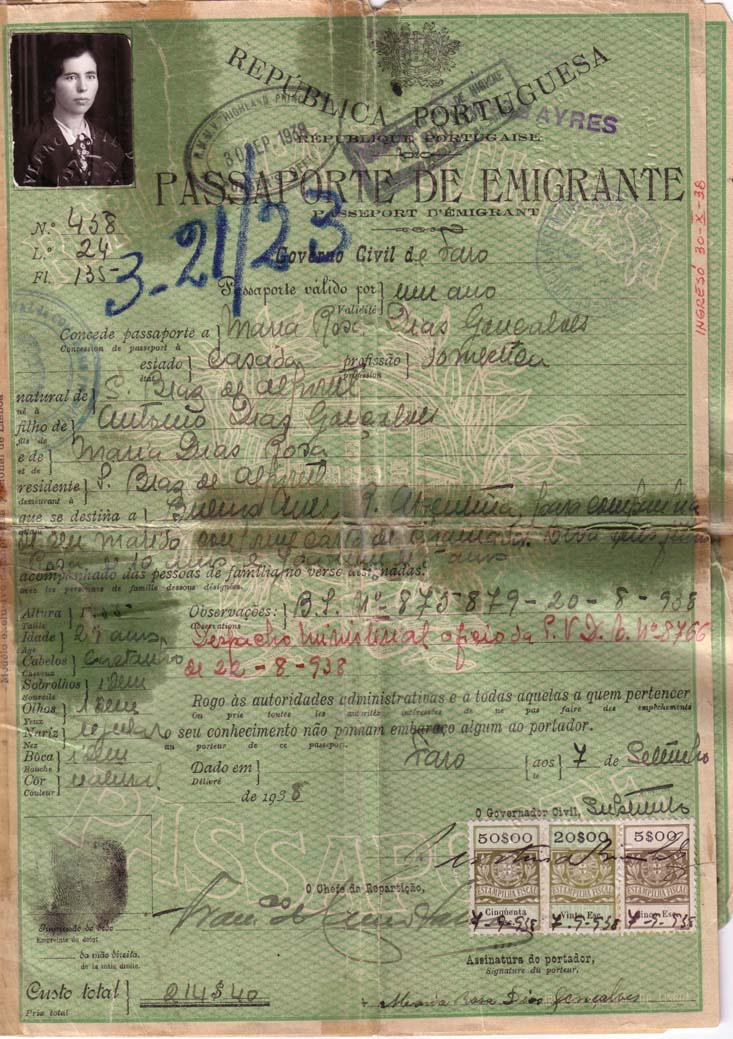 REPÚBLICA PORTUGUESA
RÉPUBLIQUE PORTUGAISE
AYRES
HIGHLAND
30 SEP. 1938
PASSAPORTE DE EMIGRANTE
PASSEPORT D'ÉMIGRANT
N.º 458
L.º 24
Fl. 135
3-21/23
Governo Civil de Faro
Passaporte válido por um ano
Validité
INGRESÓ 30-X-38
Concede passaporte a Maria Rosa Dias Gonçalves
Concession de passeport à
estado Casada profissão Domestica
état profession
natural de S. Braz de Alportel
né à
filho de Antonio Dias Gonçalves
fils de
e de Maria Dias Rosa
et de
residente S. Braz de Alportel
demeurant à
que se destina a Buenos Aires, R. Argentina, para companhia
allant
acompanhado das pessoas de família no verso designadas.
avec les personnes de famille dessous désignées.
Altura
Taille
Observações: B.I. Nº 875879-20-8-938
Observations
Idade anos
Age
Despacho Ministerial oficio da P.V.D.E. Nº 8766
de 22-8-938
Cabelos Castanho
Cheveux
Sobrolhos idem
Sourcils
Olhos idem
Yeux
Rogo às autoridades administrativas e a todas aquelas a quem pertencer
On prie toutes les autorités intéressées de ne pas faire des empêchements
Nariz regular
Nez
o seu conhecimento não ponham embaraço algum ao portador.
au porteur de ce passeport.
Boca idem
Bouche
Dado em Faro aos 7 de Setembro
Délivré le
Côr natural
Couleur
de 1938
O Governador Civil, Substituto
50$00 20$00 5$00
ESTAMPILHA FISCAL ESTAMPILHA FISCAL ESTAMPILHA FISCAL
Cinqüenta Vinte Esc. Cinco Esc.
7-9-938 7-9-938 7-9-938
O Chefe da Repartição,
Impressão do dedo
Empreinte du doigt
da mão direita.
de la main droite.
Assinatura do portador,
Signature du porteur,
Custo total 214$40
Prix total
Maria Rosa Dias Gonçalves
PASSAPORTE